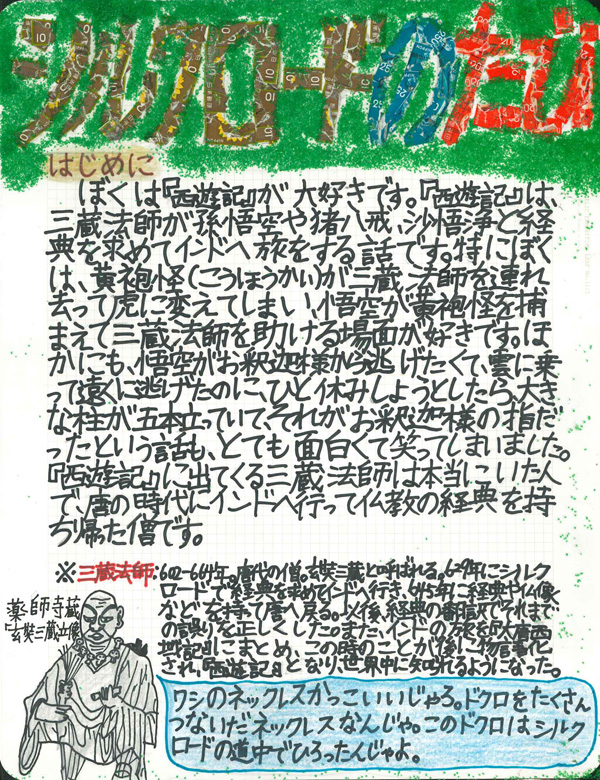 シルクロードのたび
はじめに
ぼくは『西遊記』が大好きです。『西遊記』は、
三蔵法師が孫悟空や猪八戒、沙悟浄と経
典を求めてインドへ旅をする話です。特にぼく
は、黄袍怪(こうほうかい)が三蔵法師を連れ
去って虎に変えてしまい、悟空が黄袍怪を捕
まえて三蔵法師を助ける場面が好きです。ほ
かにも、悟空がお釈迦様から逃げたくて、雲に乗
って遠くに逃げたのに、ひと休みしようとしたら、大き
な柱が五本立っていて、それがお釈迦様の指だ
ったという話も、とても面白くて笑ってしまいました。
『西遊記』に出てくる三蔵法師は本当にいた人
で、唐の時代にインドへ行って仏教の経典を持
ち帰った僧です。
※三蔵法師:602-664年。唐代の僧。玄奘三蔵と呼ばれる。629年にシルク
ロードで経典を求めてインドへ行き、645年に経典や仏像
などを持って唐へ戻る。以後、経典の翻訳でそれまで
の誤りを正しくした。また、インドの旅を『大唐西
域記』にまとめ、この時のことが後に物語化
され、『西遊記』となり世界中に知られるようになった。
薬師寺蔵
『玄奘三蔵立像』
ワシのネックレスかっこいいじゃろ。ドクロをたくさん
つないだネックレスなんじゃ。このドクロはシルク
ロードの道中でひろったんじゃよ。